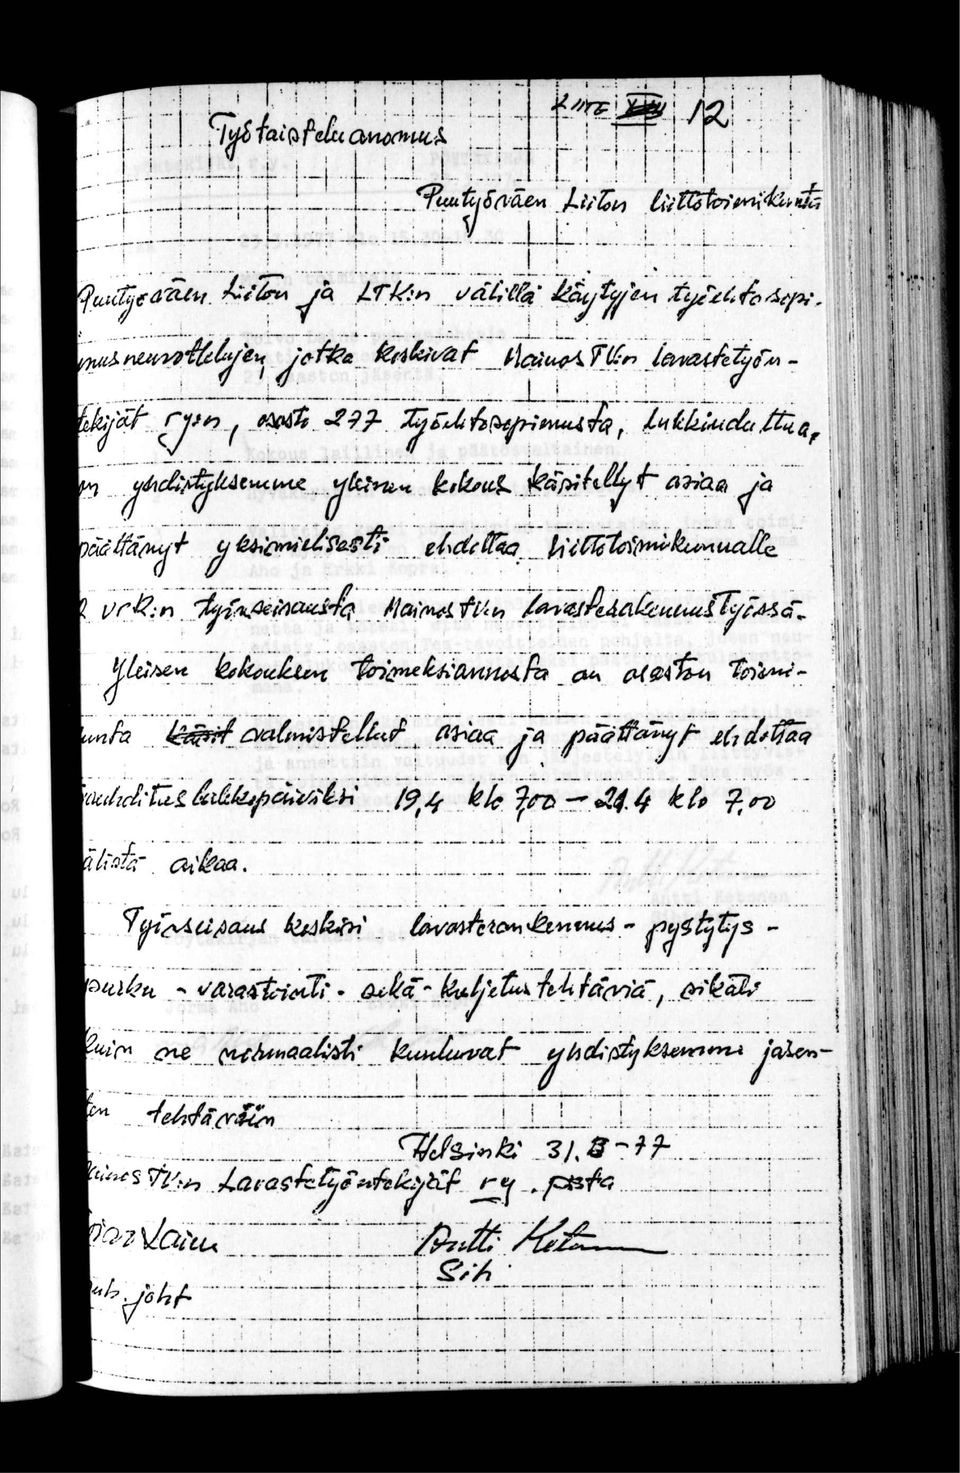 LIITE 12
Työtaisteluanomus
Puutyöväen Liiton liittotoimikunta
Puutyöväen Liiton ja LTK:n välillä käytyjen työehtosopi-
musneuvottelujen, jotka koskivat MainosTV:n lavastetyön-
tekijät ry:n, osasto 277 työehtosopimusta, lukkiuduttua,
on yhdistyksemme yleinen kokous käsitellyt asiaa ja
päättänyt yksimielisesti ehdottaa liittotoimikunnalle
2 vrk:n työnseisausta MainosTV:n lavasterakennustyössä.
Yleisen kokouksen toimeksiannosta on osaston toimi-
kunta valmistellut asiaa ja päättänyt ehdottaa
vauhdituslakkopäiviksi 19,4 klo 7,00 – 21.4 klo 7.00
välistä aikaa.
Työnseisaus koskisi lavasterankennus- pystytys -
purku - varastointi - sekä - kuljetustehtäviä, sikäli
kuin ne normaalisti kuuluvat yhdistyksemme jäsen-
ten tehtäviin
Helsinki 31.3-77
MainosTV:n Lavastetyöntekijät ry. psta
Antti Ketonen
Sih
puh. joht